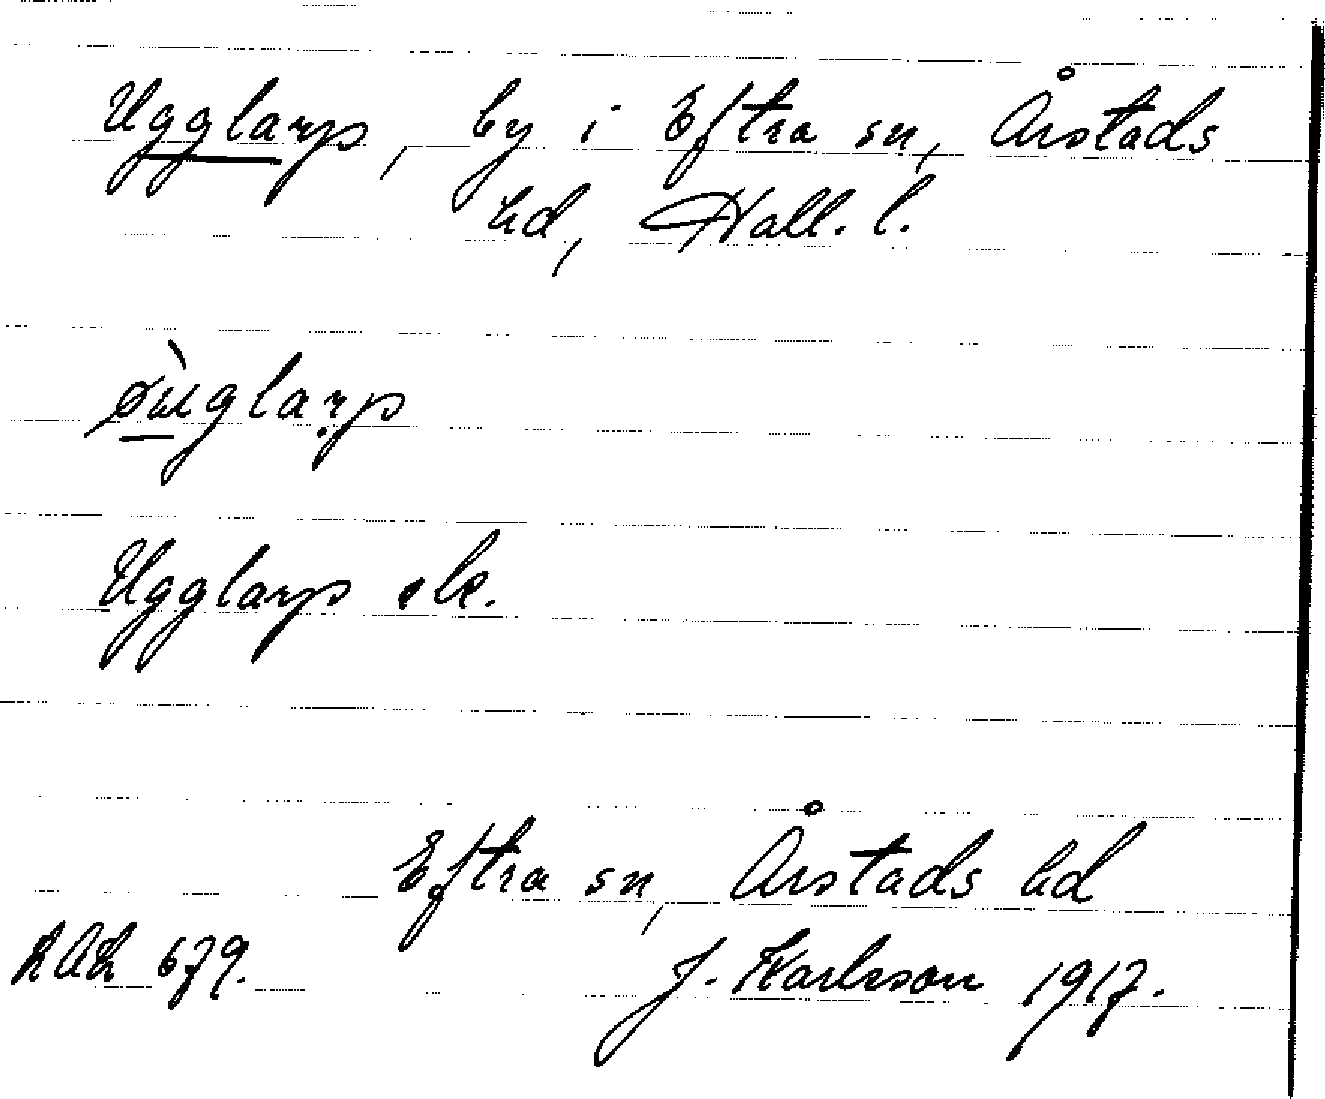 Ugglarp, by i Eftra sn, Årstads
hd, Hall. l.
øùglarp
Ugglarp ek.
Eftra sn, Årstads hd
LAL 679.
J. Karlsson 1917.